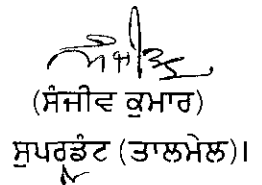 (ਸੰਜੀਵ ਕੁਮਾਰ)
ਸੁਪਰਡੰਟ (ਤਾਲਮੇਲ)।